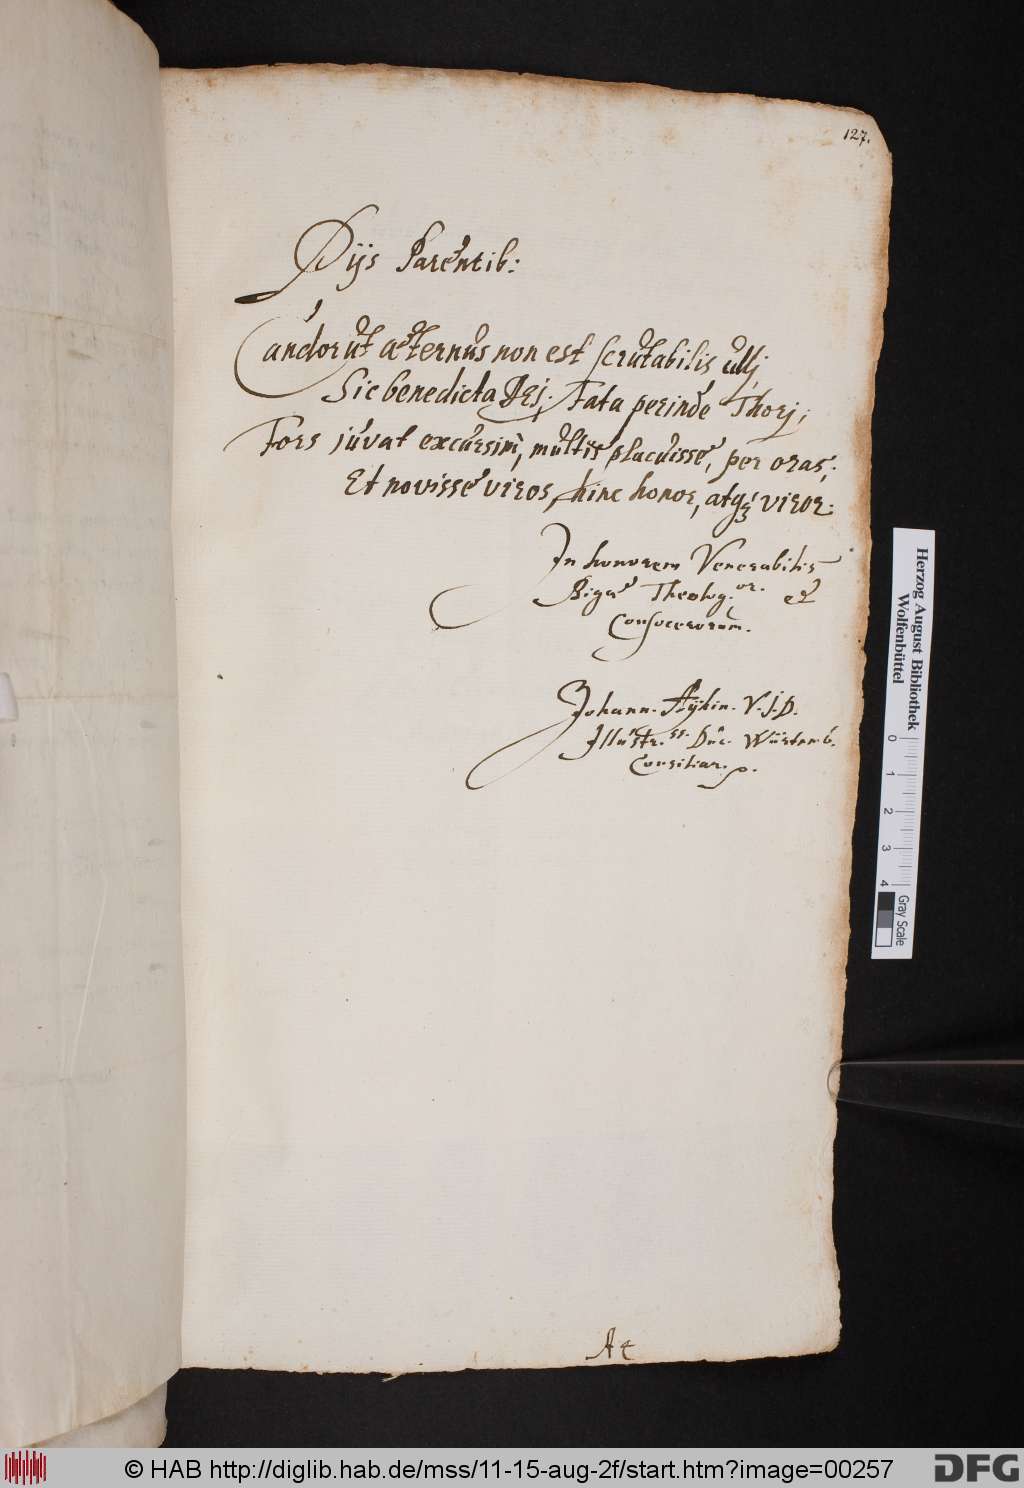 127.
Dijs Parentib:
Candor ut æternus non est scrutabilis ullj,
Sic benedicta DEJ; Fata perinde Thorj;
Fors juvat excursim, multis placuisse, per oras;
Et novisse viros, hinc honor, atq; viror.
In honorem Venerabilis
Bigæ Theolog.or. et
Consocerorum.
Johann. V.J.D.
Illustr.ss. Duc. Würtemb.
Consiliar. p.
A 4
Herzog August Bibliothek
Wolfenbüttel
0 1 2 3 4
Gray Scale
© HAB http://diglib.hab.de/mss/11-15-aug-2f/start.htm?image=00257
DFG